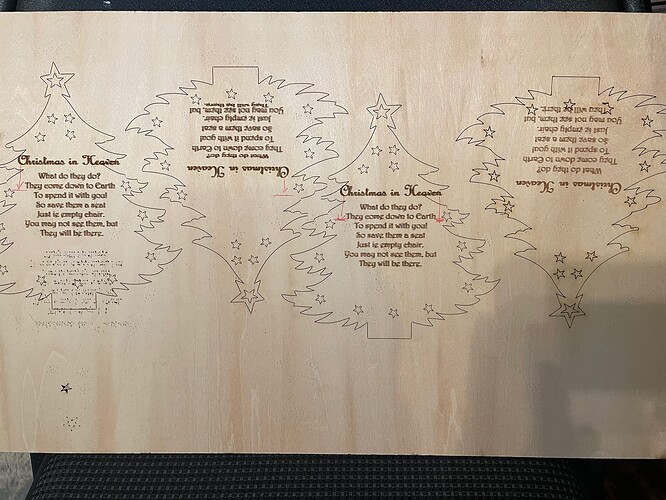 Christmas in Heaven
What do they do?
They come down to Earth
To spend it with you!
So save them a seat
Just ie empty chair.
You may not see them, but
They will be there.
Christmas in Heaven
What do they do?
They come down to Earth
To spend it with you!
So save them a seat
Just ie empty chair.
You may not see them, but
They will be there.
Christmas in Heaven
What do they do?
They come down to Earth
To spend it with you!
So save them a seat
Just ie empty chair.
You may not see them, but
They will be there.
Christmas in Heaven
What do they do?
They come down to Earth
To spend it with you!
So save them a seat
Just ie empty chair.
You may not see them, but
They will be there.